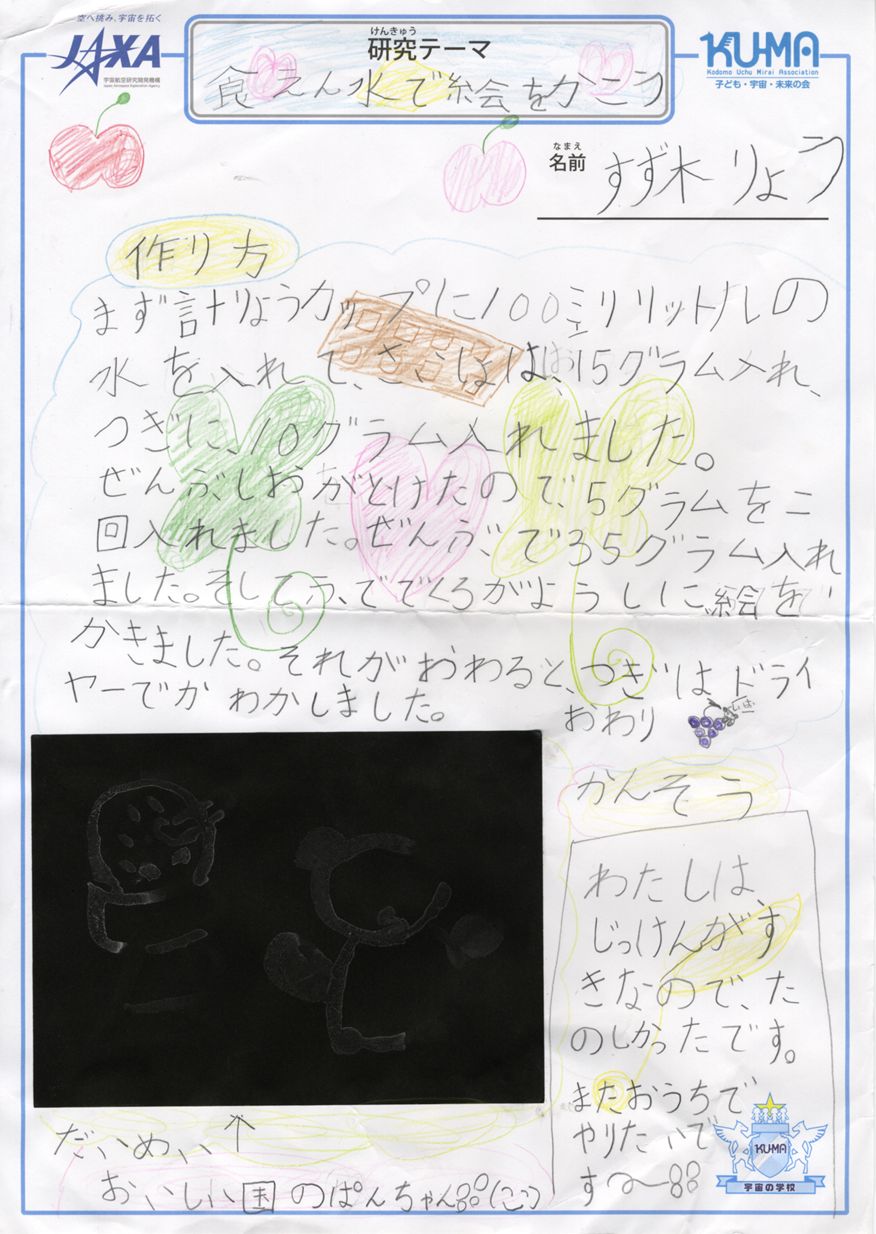 空へ挑み、宇宙を拓く
JAXA
宇宙航空研究開発機構
Japan Aerospace Exploration Agency
けんきゅう
研究テーマ
食えん水で絵をかこう
KU-MA
Kodomo Uchu Mirai Association
子ども・宇宙・未来の会
なまえ
名前
すず木りょう
作り方
まず計りょうカップに100ミリリットルの
水を入れて、さいしょは、15グラム入れ、
つぎに、10グラム入れました。
ぜんぶ、しおがとけたので、5グラムを二
回入れました。ぜんぶ、で35グラム入れ
ました。そしてふ、ででくろがようしに、絵を
かきました。それがおわると、つぎはドライ
ヤーでかわかしました。
おわり
かんそう
わたしは、
じっけんがす
きなので、た
のしかったです。
またおうちで
やりたいで
す〜
だいめい↑
おいしい国のぱんちゃん
KU-MA
宇宙の学校